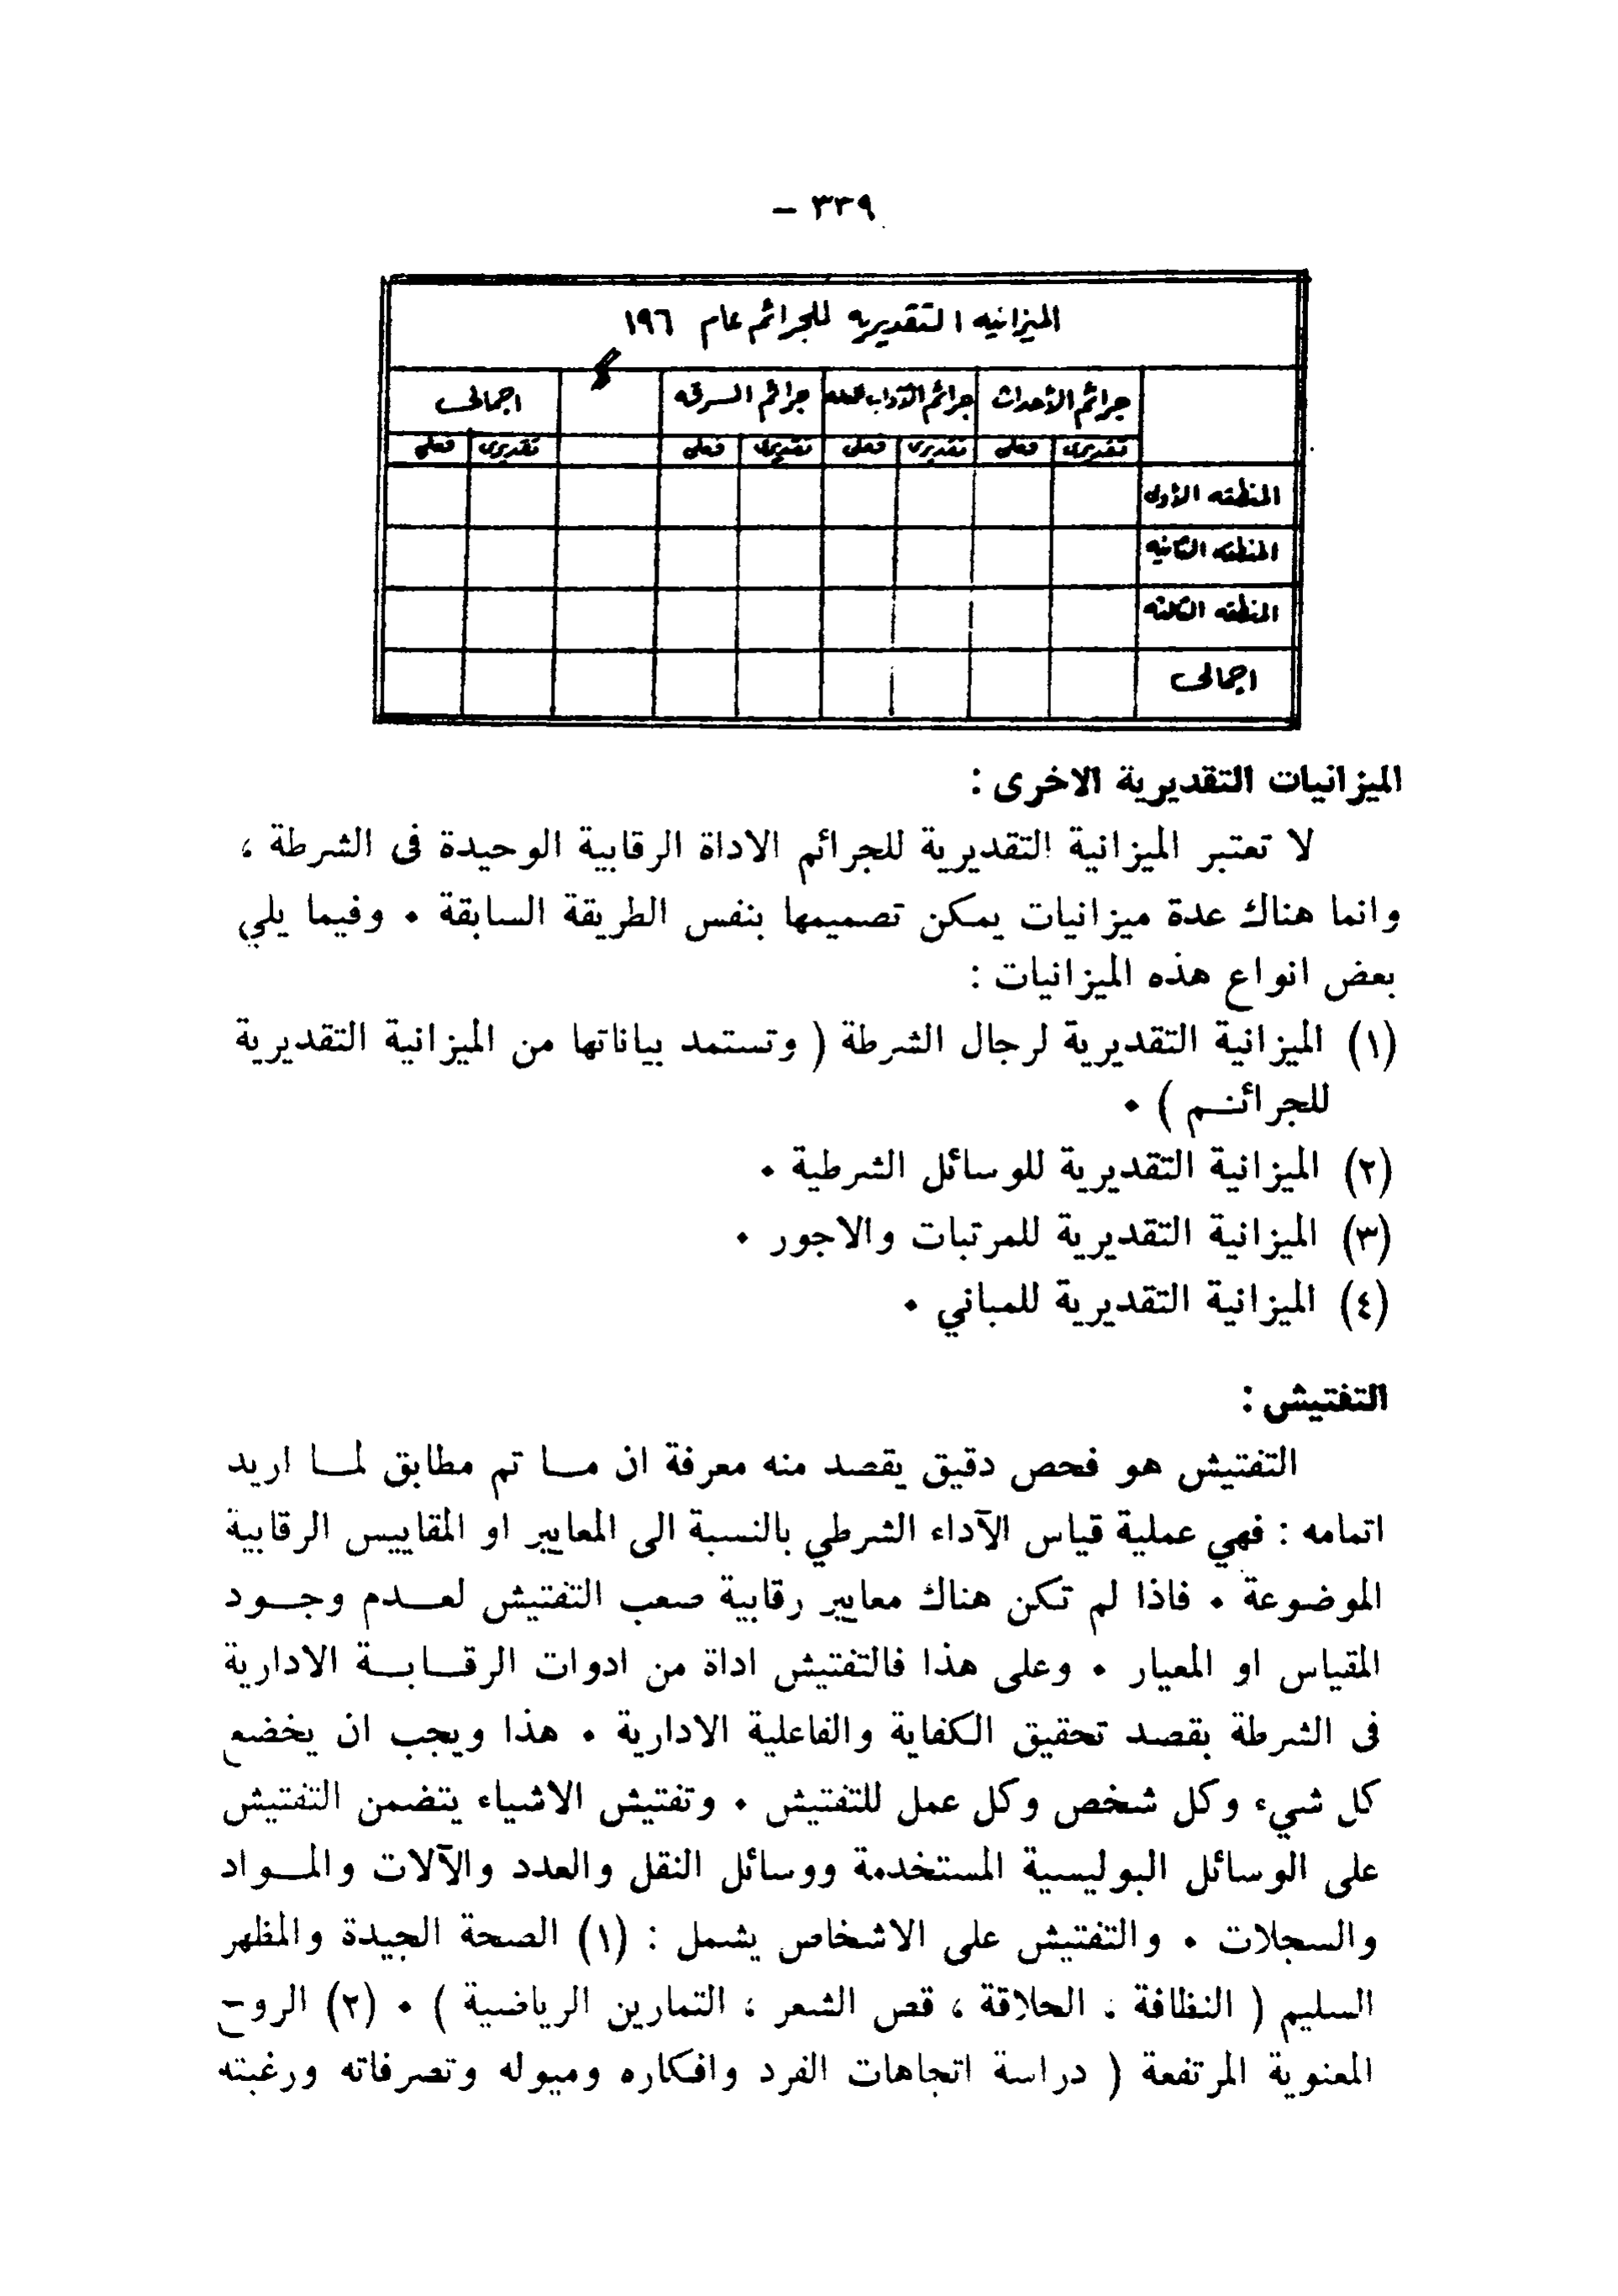 ٣٣٩ –
الميزانيه التقديريه للجرائم عام ١٩٦
جرائم الأحداث جرائم الآداب جرائم السرقه اجمالى
تقديرى فعلى تقديرى فعلى تقديرى فعلى تقديرى فعلى
المنطقه الأولى
المنطقه الثانيه
المنطقه الثالثه
اجمالى
الميزانيات التقديرية الاخرى :
لا تعتبر الميزانية التقديرية للجرائم الاداة الرقابية الوحيدة فى الشرطة ،
وانما هناك عدة ميزانيات يمكن تصميمها بنفس الطريقة السابقة ٠ وفيما يلي
بعض انواع هذه الميزانيات :
(١) الميزانية التقديرية لرجال الشرطة ( وتستمد بياناتها من الميزانية التقديرية
للجرائــم ) ٠
(٢) الميزانية التقديرية للوسائل الشرطية ٠
(٣) الميزانية التقديرية للمرتبات والاجور ٠
(٤) الميزانية التقديرية للمباني ٠
التفتيش :
التفتيش هو فحص دقيق يقصد منه معرفة ان مــا تم مطابق لمــا اريد
اتمامه : فهي عملية قياس الآداء الشرطي بالنسبة الى المعايير او المقاييس الرقابية
الموضوعة ٠ فاذا لم تكن هناك معايير رقابية صعب التفتيش لعــدم وجــود
المقياس او المعيار ٠ وعلى هذا فالتفتيش اداة من ادوات الرقــابــة الادارية
فى الشرطة بقصد تحقيق الكفاية والفاعلية الادارية ٠ هذا ويجب ان يخضع
كل شيء وكل شخص وكل عمل للتفتيش ٠ وتفتيش الاشياء يتضمن التفتيش
على الوسائل البوليسية المستخدمة ووسائل النقل والعدد والآلات والمــواد
والسجلات ٠ والتفتيش على الاشخاص يشمل : (١) الصحة الجيدة والمظهر
السليم ( النظافة ، الحلاقة ، قص الشعر ، التمارين الرياضية ) ٠ (٢) الروح
المعنوية المرتفعة ( دراسة اتجاهات الفرد وافكاره وميوله وتصرفاته ورغبته